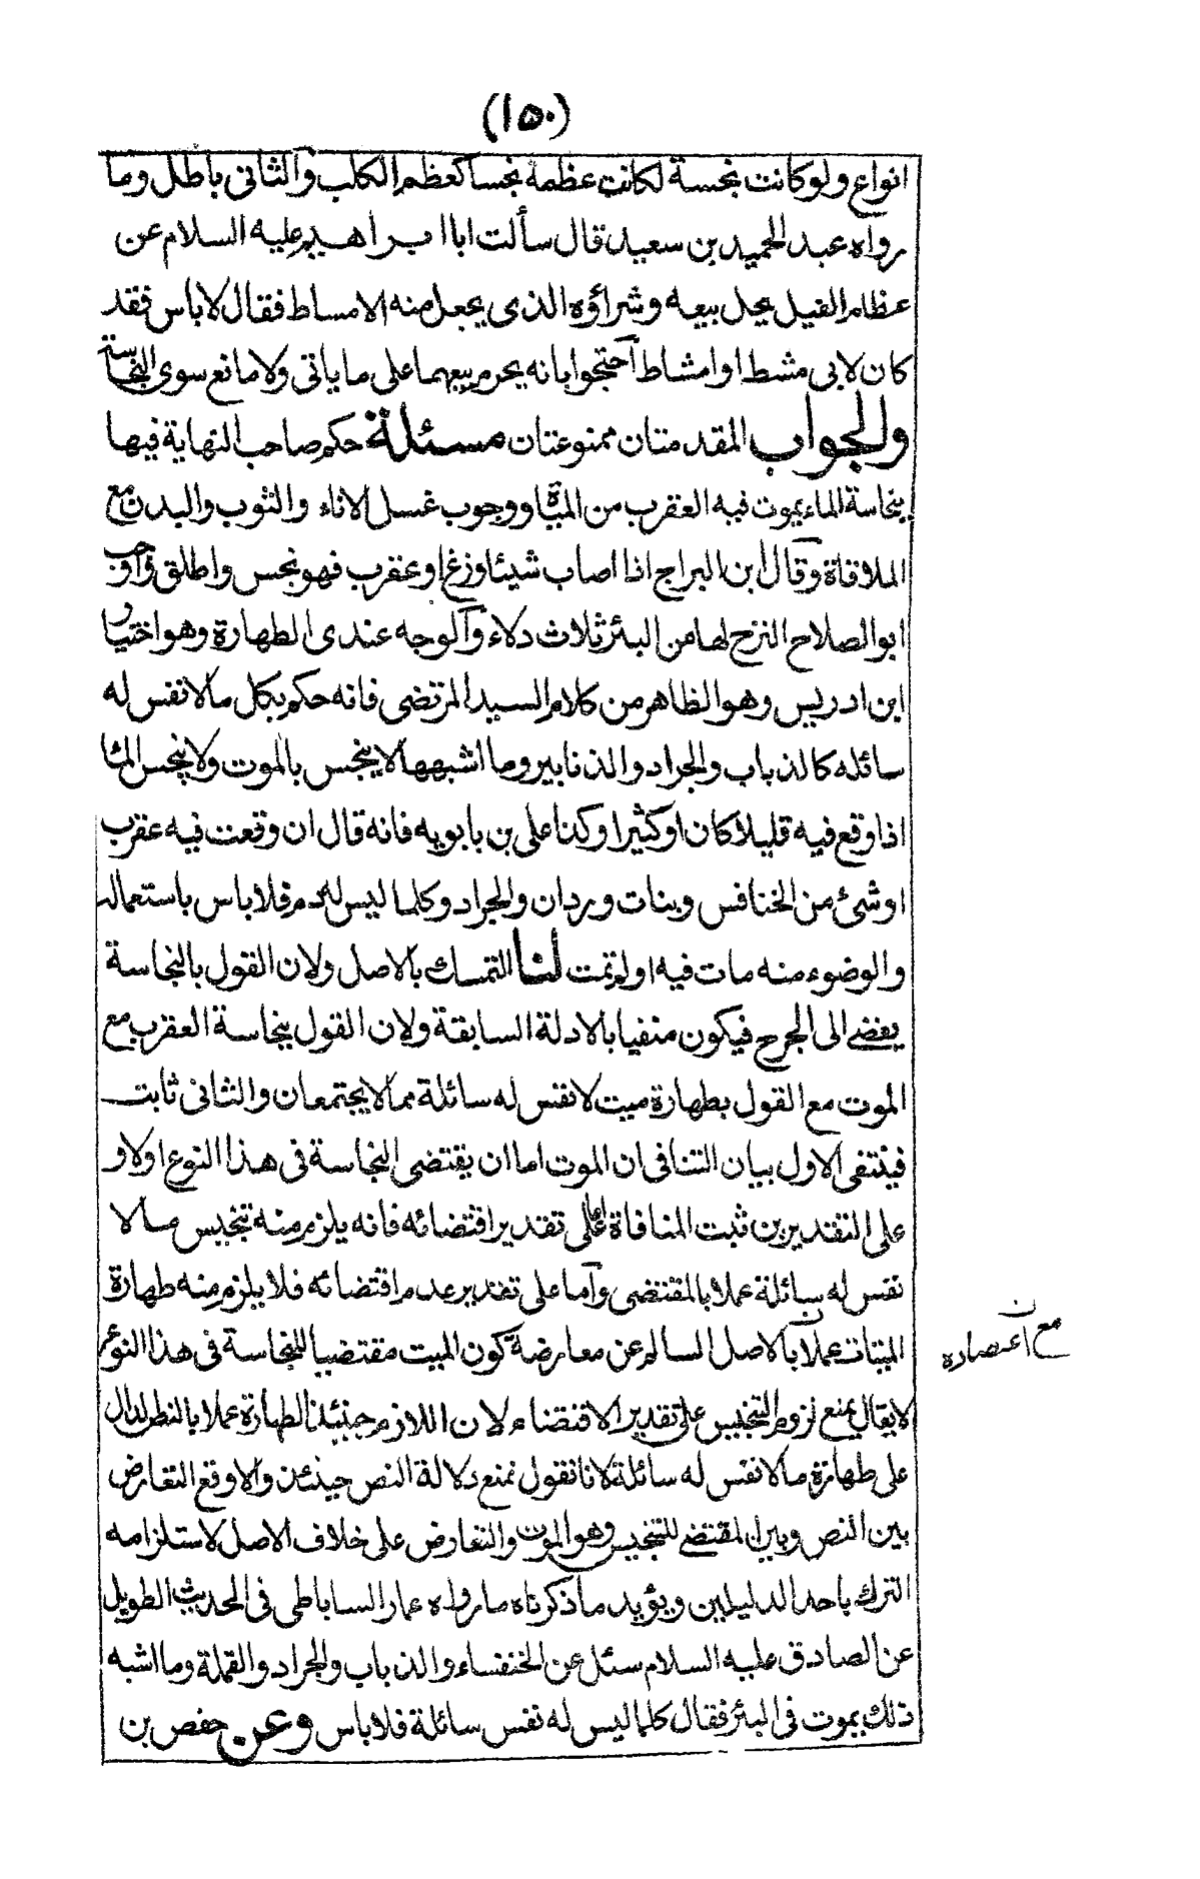 (١٥٠)
انواع ولوكانت نجسة لكانت عظمه نجسا كعظم الكلب والثانى باطل وما
رواه عبد الحميد بن سعيد قال سألت ابا ابراهيم عليه السلام عن
عظام الفيل يحل بيعه وشراؤه الذى يجعل منه الامساط فقال لاباس فقد
كان لابى مشط او امشاط آحتجوا بانه يحرم بيعهما على ما ياتى ولا مانع سوى النجاسة
والجواب المقدمتان ممنوعتان مسئلة حكم صاحب النهاية فيها
بنجاسة الماء يموت فيه العقرب من المياه ووجوب غسل الاناء والثوب والبدن مع
الملاقاة وقال ابن البراج اذا اصاب شيئا وزغ او عقرب فهو نجس واطلق واوجب
ابو الصلاح النزح لها من البئر ثلاث دلاء وآلوجه عندى الطهارة وهو اختيار
ابن ادريس وهو الظاهر من كلام السيد المرتضى فانه حكم بكل ما لا نفس له
سائله كالذباب والجراد والذنابير وما اشبهها لا ينجس بالموت ولا ينجس الماء
اذا وقع فيه قليلا كان او كثيرا وكذا على بن بابويه فانه قال ان وقعت فيه عقرب
او شئ من الخنافس وبنات وردان والجراد وكلما ليس له دم فلا باس باستعماله
والوضوء منه مات فيه او لم تمت لنا التمسك بالاصل ولان القول بالنجاسة
يفضى الى الجرح فيكون منفيا بالادلة السابقة ولان القول بنجاسة العقرب مع
الموت مع القول بطهارة ميت لا نفس له سائلة مما لا يجتمعان والثانى ثابت
فينتفى الاول بيان التنافى ان الموت اما ان يقتضى النجاسة فى هذا النوع اولا و
على التقديرين ثبت المنافاة اما على تقدير اقتضائه فانه يلزم منه تنجيس ما لا
نفس له سائلة عملا بالمقتضى وآما على تقدير عدم اقتضائه فلا يلزم منه طهارة
الميتات عملا بالاصل السالم عن معارضة كون الميت مقتضيا للنجاسة فى هذا النوع
مع اعتضاده
لا يقال يمنع لزوم التنجيس على تقدير الاقتضاء لان اللازم حينئذ الطهارة عملا بالنص الدال
على طهارة ما لا نفس له سائلة لانا نقول نمنع دلالة النص حينئذ والا وقع التعارض
بين النص وبين المقتضى للتنجيس وهو الموت والتعارض على خلاف الاصل لاستلزامه
الترك باحد الدليلين ويؤيد ما ذكرناه ما رواه عمار الساباطى فى الحديث الطويل
عن الصادق عليه السلام سئل عن الخنفساء والذباب والجراد والقملة وما اشبه
ذلك يموت فى البئر فقال كلما ليس له نفس سائلة فلا باس وعن حفص بن